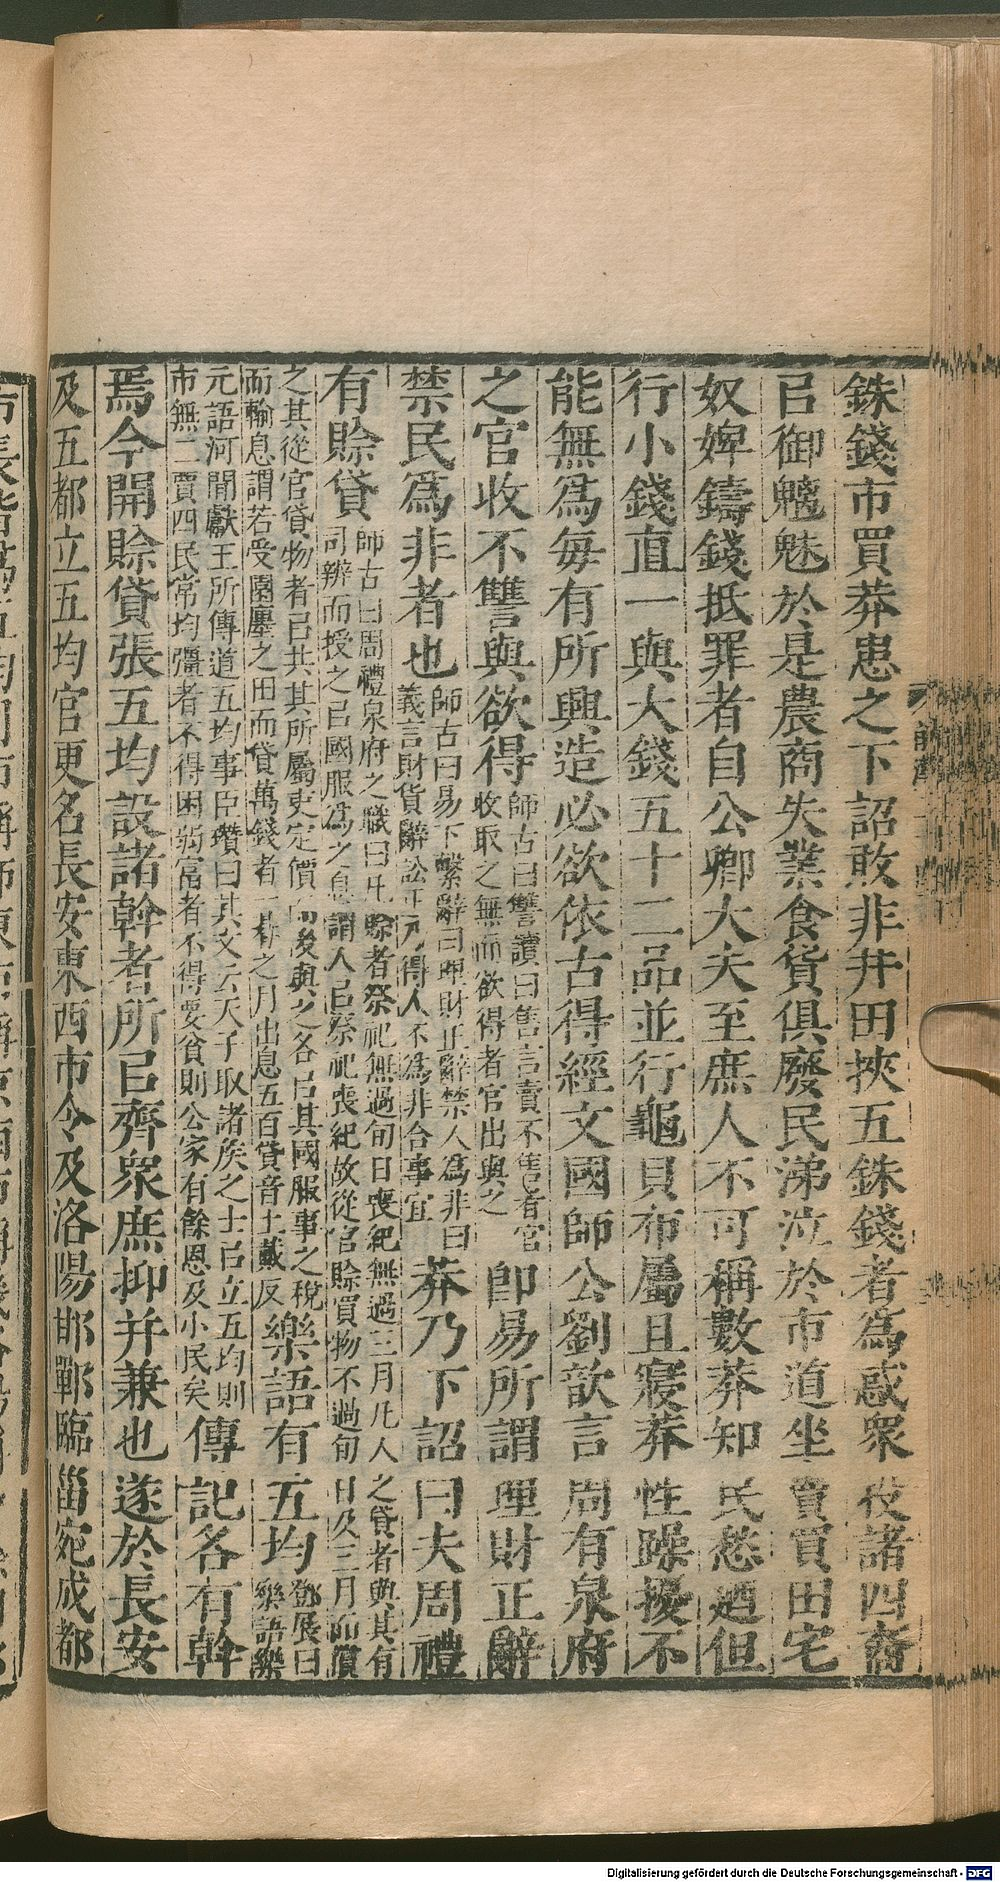 銖錢市買莽患之下詔敢非井田挾五銖錢者爲惑衆投諸四裔
㠯御魑魅於是農商失業食貨俱廢民涕泣於市道坐賣買田宅
奴婢鑄錢抵罪者自公卿大夫至庶人不可稱數莽知民愁迺但
行小錢直一與大錢五十二品並行龜貝布屬且寢莽性躁擾不
能無爲每有所興造必欲依古得經文國師公劉歆言周有泉府
之官收不讐與欲得師古曰讐讀曰售言賣不售者官收取之無而欲得者官出與之卽易所謂理財正辭
禁民爲非者也師古曰易下繫辭曰理財正辭禁人爲非曰義言財貨辭訟正乃得人不爲非合事宜莽乃下詔曰夫周禮
有賒貸師古曰周禮泉府之職曰凡賒者祭祀無過旬日喪紀無過三月凡人之貸者與其有司辨而授之㠯國服爲之息謂人㠯祭祀喪紀故從官賒買物不過旬日及三月而償
之其從官貸物者㠯共其所屬吏定價而後與之各㠯其國服事之稅而輸息謂若受園廛之田而貸萬錢者一朞之月出息五百貸音土戴反樂語有五均鄧展曰樂語樂
元語河間獻王所傳道五均事臣瓚曰其文云天子取諸侯之士㠯立五均則市無二賈四民常均彊者不得困弱富者不得要貧則公家有餘恩及小民矣傳記各有幹
焉今開賒貸張五均設諸幹者所㠯齊衆庶抑并兼也遂於長安
及五都立五均官更名長安東西市令及洛陽邯鄲臨甾宛成都
Digitalisierung gefördert durch die Deutsche Forschungsgemeinschaft - DFG